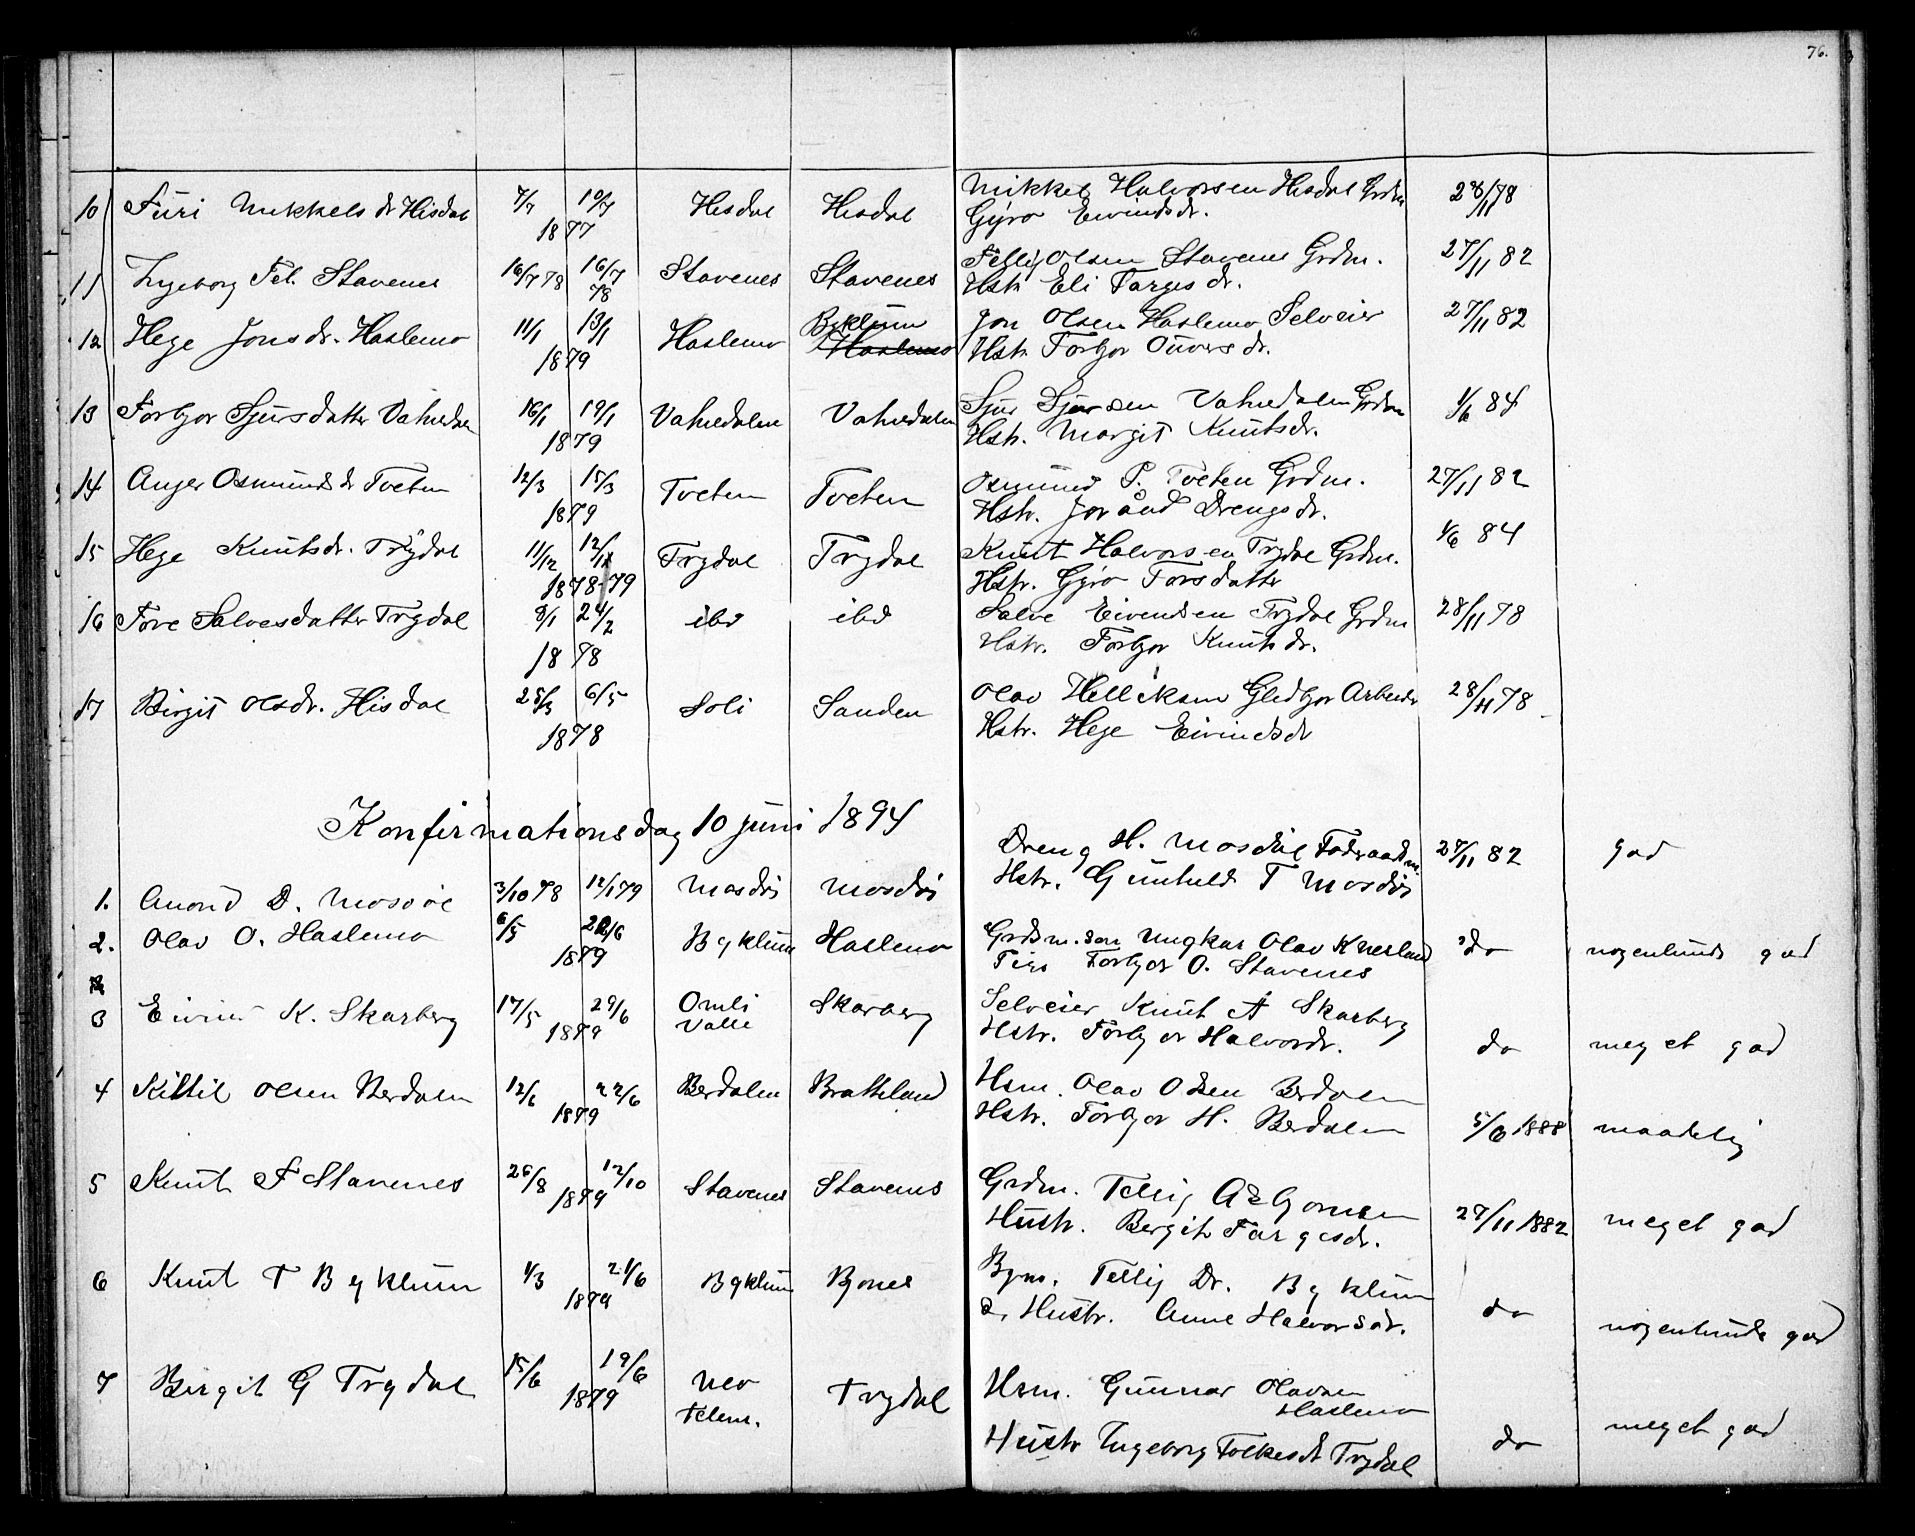 76.
10 Juri Mikkelsdr Hisdal 7/7 10/7 1877 Hisdal Hisdal Mikkel Halvorsen Hisdal Grdm 28/11 78
Gyro Eivindsdr.
11 Ingeborg Tel. Stavenes 16/7 78 16/7 78 Stavenes Stavenes Tellig Olsen Stavenes Grdm. 27/11 82
Hstr Eli Targesdr.
12 Hege Jonsdr. Haslemo 11/1 13/1 1879 Haslemo Byklum Haslemo Jon Olsen Haslemo Selveier 27/11 82
Hstr Torbjor Ouversdr.
13 Torbjor Sjursdatter Vatnedalen 16/1 19/1 1879 Vatnedalen Vatnedalen Sjur Sjursen Vatnedalen Grdm 1/6 84
Hstr. Margit Knutsdr.
14 Anger Osmundsdr Tveten 12/3 15/3 1879 Tveten Tveten Osmund P. Tveten Grdm. 27/11 82
Hstr. Joraand Drengsdr.
15 Hege Knutsdr. Trydal 11/12 12/1 1878-79 Trydal Trydal Knut Halvorsen Trydal Grdm. 1/6 84
Hstr. Gyro Torsdatter
16 Tore Salvesdatter Trydal 9/1 24/2 1878 ibd ibd Salve Eivendsen Trydal Grdm 28/11 78
Hstr. Torbjor Knutsdr.
17 Birgit Olsdr. Hisdal 25/3 6/5 1878 Soli Sanden Olav Helliksen Gledbjor Arbeider 28/11 78
Hstr. Hege Eivindsdr
Konfirmationsdag 10 juni 1894
1. Anond D. Mosdøl 3/10 78 12/1 79 Mosdøl Mosdøl Dreng H. Mosdøl Føderaadsm. 27/11 82 god
Hstr. Gunhild T Mosdøl
2. Olav O. Haslemo 6/5 22/6 1879 Byklum Haslemo Grdm.søn Ungkar Olav Kvesland do nogenlunde god
Pige Torbjør O. Stavenes
3 Eivind K. Skarberg 17/5 29/6 1879 Omli Valle Skarberg Selveier Knut A Skarberg
Hstr. Torbjør Halvordr. do meget god
4 Kittil Olsen Berdalen 12/6 22/6 1879 Berdalen Bratteland Hsm. Olav Olsen Berdalen
Hstr. Torbjør H. Berdalen 5/6 1888 maadelig
5 Knut T Stavenes 26/8 12/10 1879 Stavenes Stavenes Grdm. Tellig Asbjornsen
Hustr. Bergit Targesdr. 27/11 1882 meget god
6 Knut T Byklum 1/3 21/6 1879 Byklum Bjones Bgm. Tellig Dr. Byklum
& Hustr. Anne Halvorsdr. do nogenlunde god
7 Birgit G Trydal 15/6 19/6 1879 Mo Telem. Trydal Hsm. Gunnar Olavsen Haslemo
Hustr Ingeborg Folkesdt Trydal do meget god